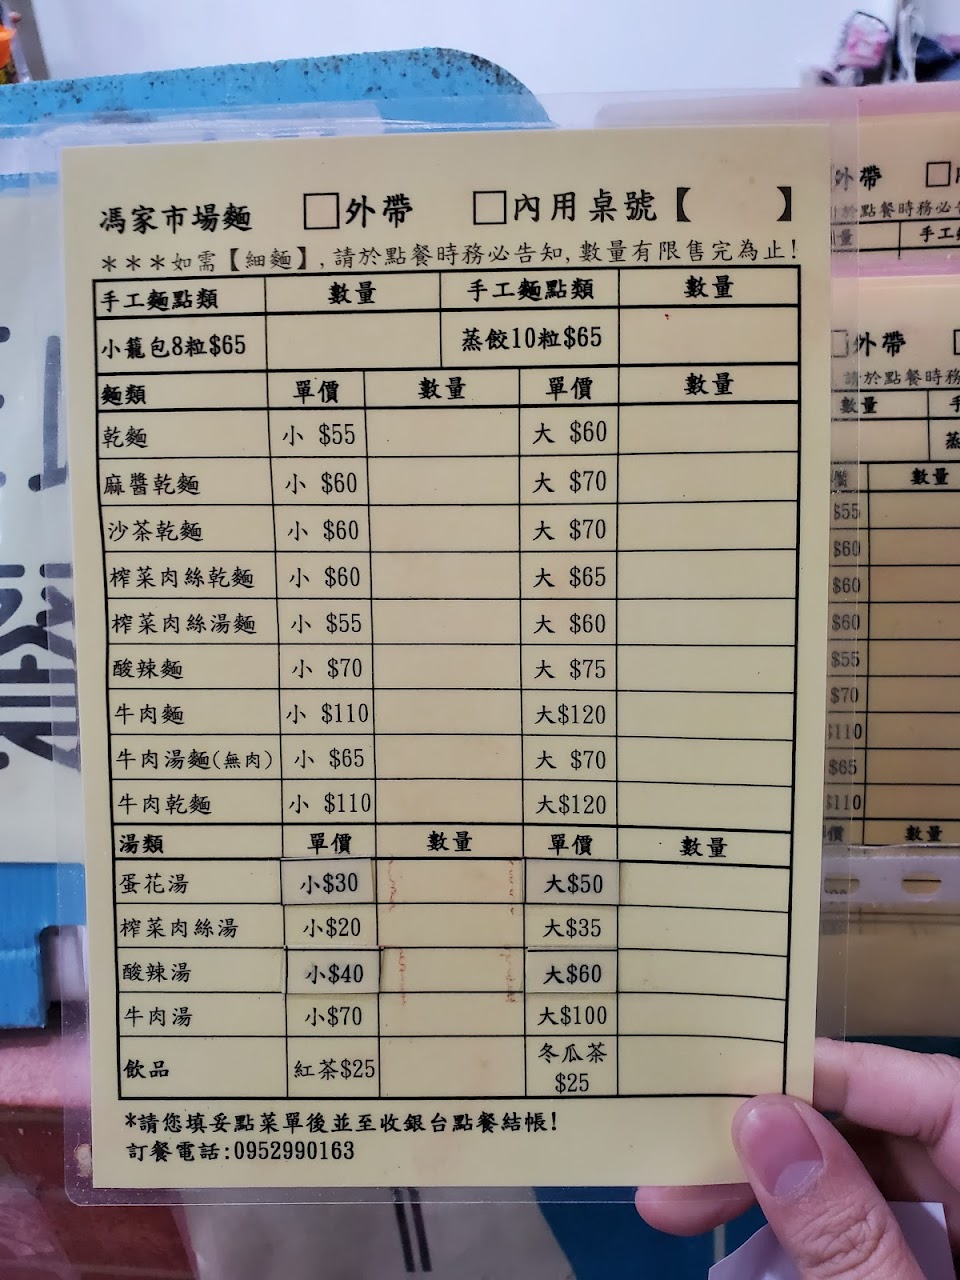 馮家市場麵 □外帶 □內用桌號【 】
***如需【細麵】,請於點餐時務必告知,數量有限售完為止!
手工麵點類 數量 手工麵點類 數量
小籠包8粒$65 蒸餃10粒$65
麵類 單價 數量 單價 數量
乾麵 小 $55 大 $60
麻醬乾麵 小 $60 大 $70
沙茶乾麵 小 $60 大 $70
榨菜肉絲乾麵 小 $60 大 $65
榨菜肉絲湯麵 小 $55 大 $60
酸辣麵 小 $70 大 $75
牛肉麵 小 $110 大$120
牛肉湯麵(無肉) 小 $65 大 $70
牛肉乾麵 小 $110 大$120
湯類 單價 數量 單價 數量
蛋花湯 小$30 大$50
榨菜肉絲湯 小$20 大$35
酸辣湯 小$40 大$60
牛肉湯 小$70 大$100
飲品 紅茶$25 冬瓜茶
$25
*請您填妥點菜單後並至收銀台點餐結帳!
訂餐電話:0952990163
外帶
點餐時務必
手工
外帶
請於點餐時務
數量
數量
$55
$60
$60
$60
$55
$70
$110
$65
$110
數量